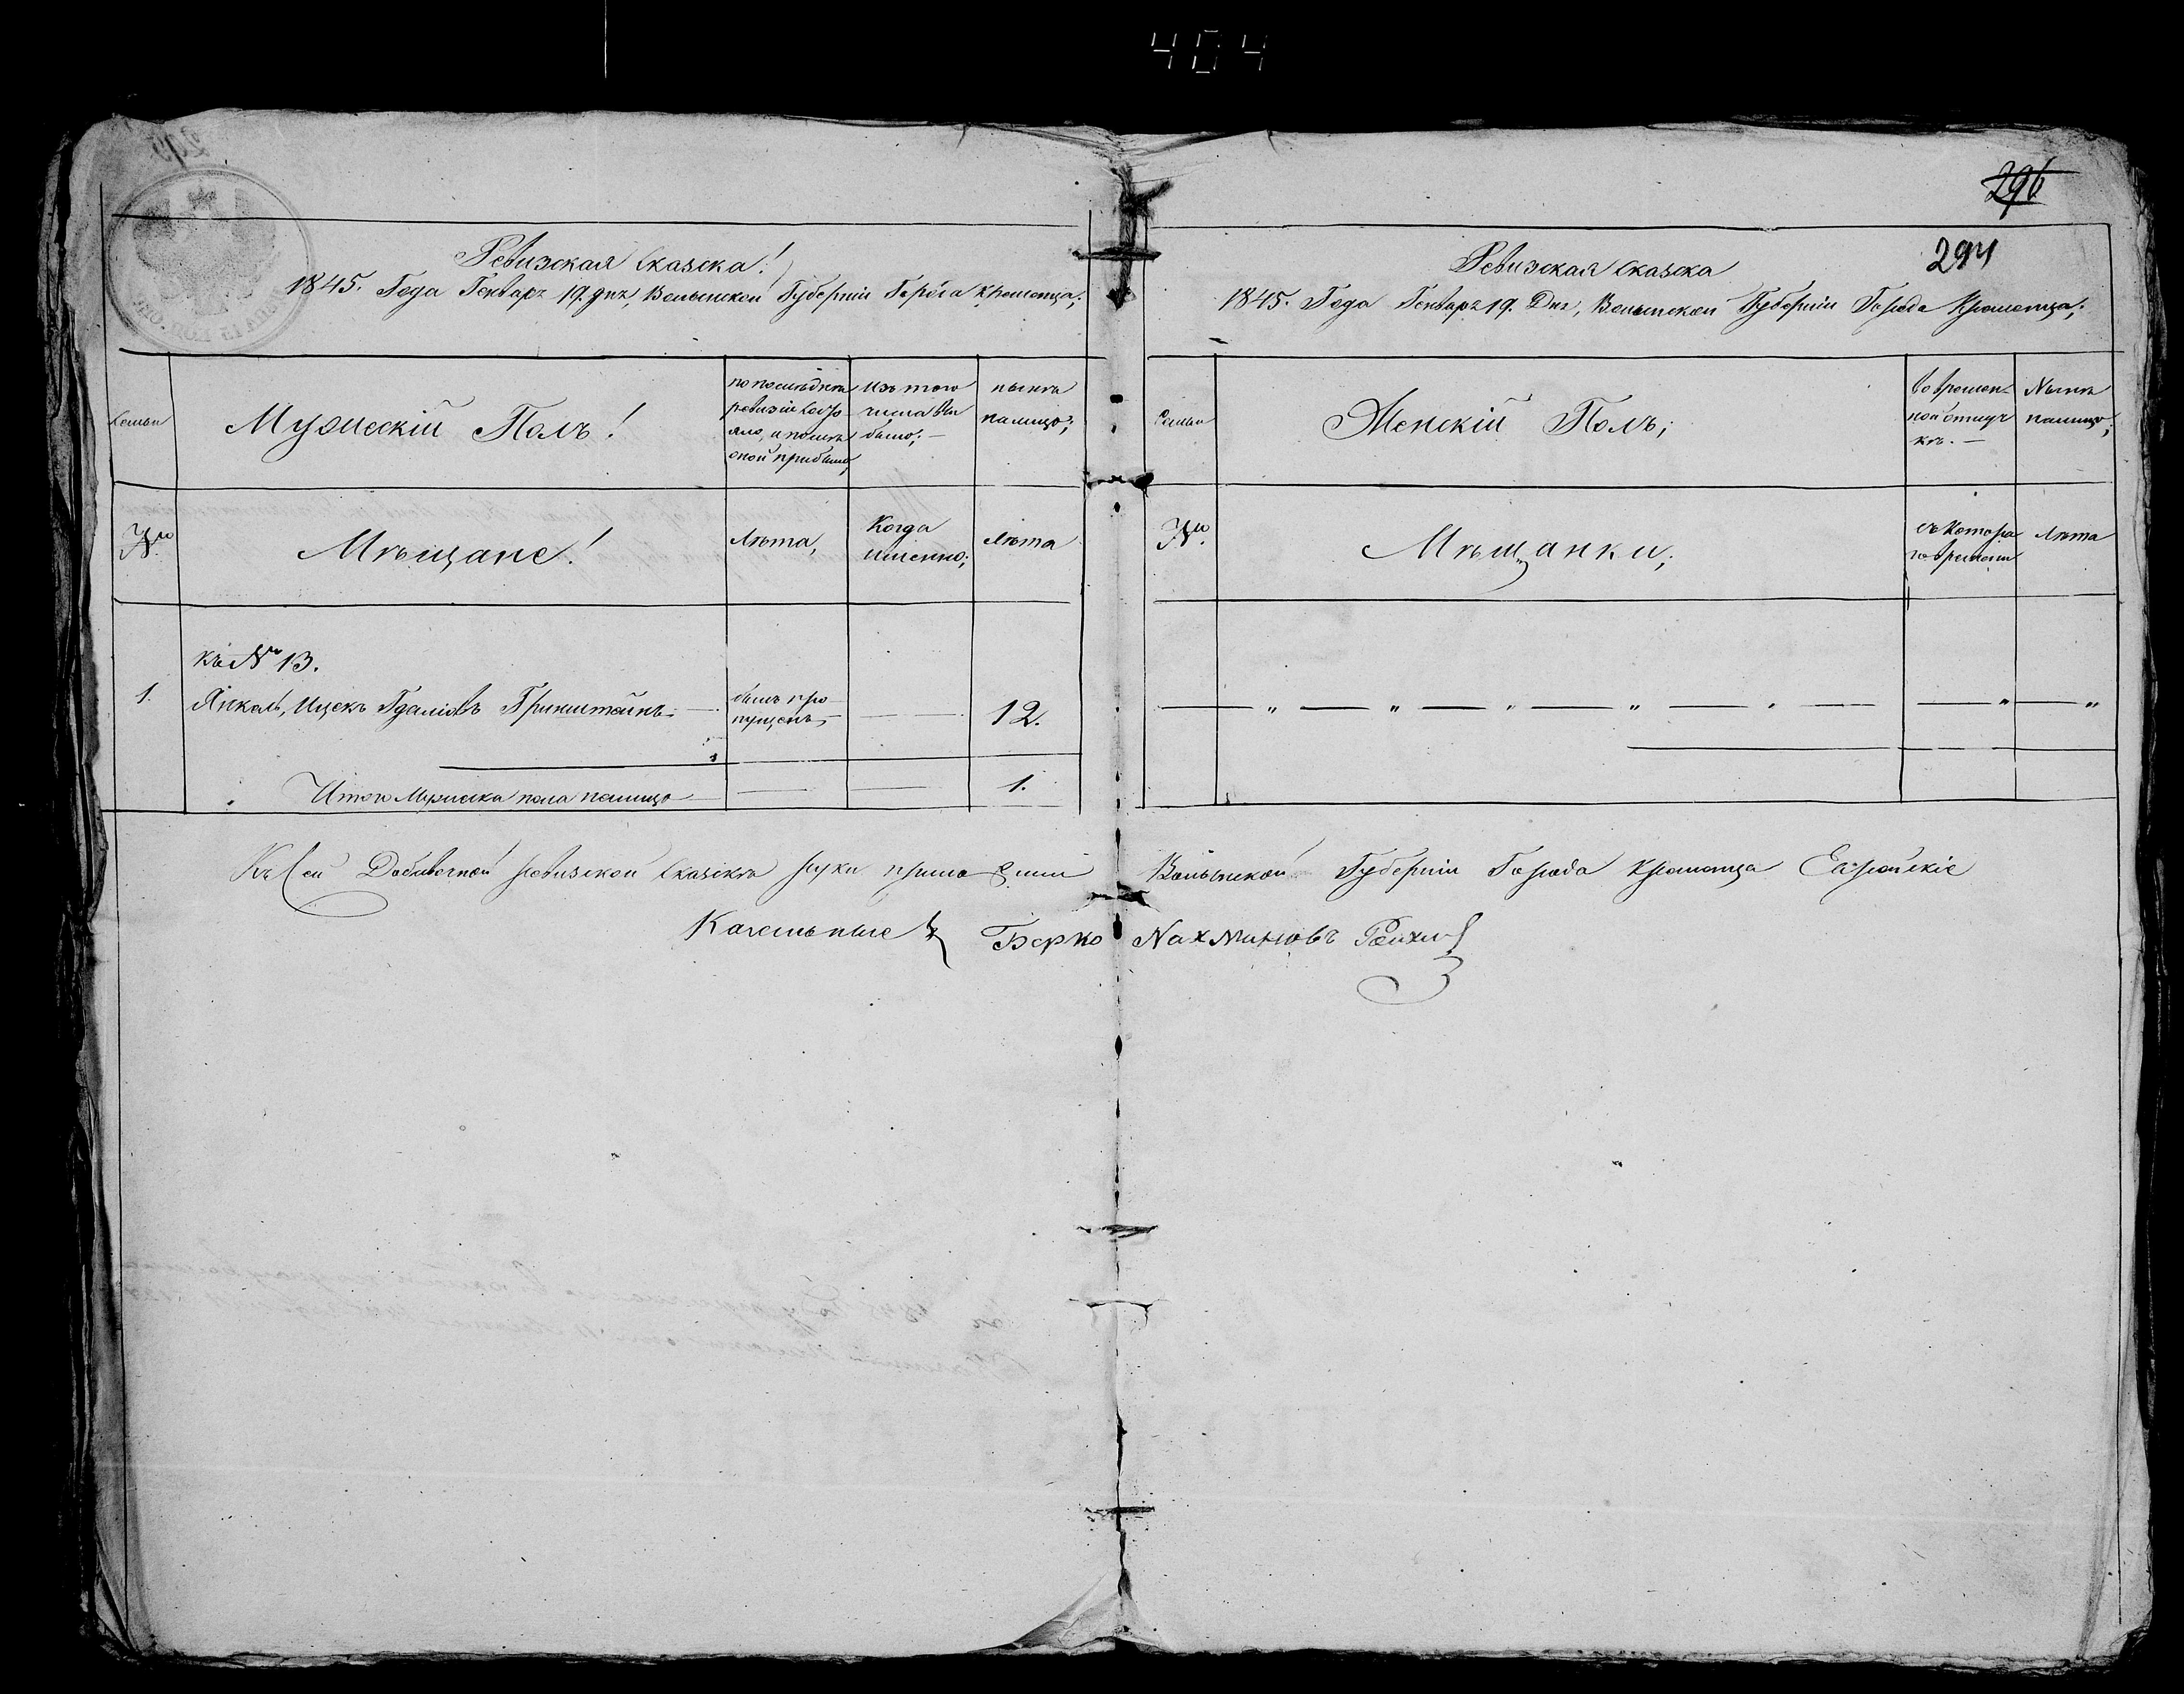 404
296
294
Ревизская Сказка!
1845. Года Генваря 19. дня, Волынской Губерніи Города Кременца;
Семьи
Мужескій Полъ!
по последней
ревизіи состо
яло, и после
оной прибыло
изъ того
числа вы
было;
ныне
налицо;
№
Мѣщане!
Лѣта,
Когда
именно;
Лѣта
къ № 13.
1. Янкель, Ицекъ Гдаліовъ Гринштейнъ
былъ про
пущенъ,
12.
Итого Мужеска пола налицо
1.
Ревизская Сказка
1845. Года Генваря 19. Дня, Волынской Губерніи Города Кременца;
Семьи
Женскій Полъ;
во времен
ной отлуч
кѣ.
Ныне
налицо;
№
Мѣщанки;
съ котора
го времени
Лѣта
Къ Сей Добавочной ревизской Сказкѣ руки приложили Волынской Губерніи Города Кременца Еврейскіе
Кагальные Берко Нахмановъ